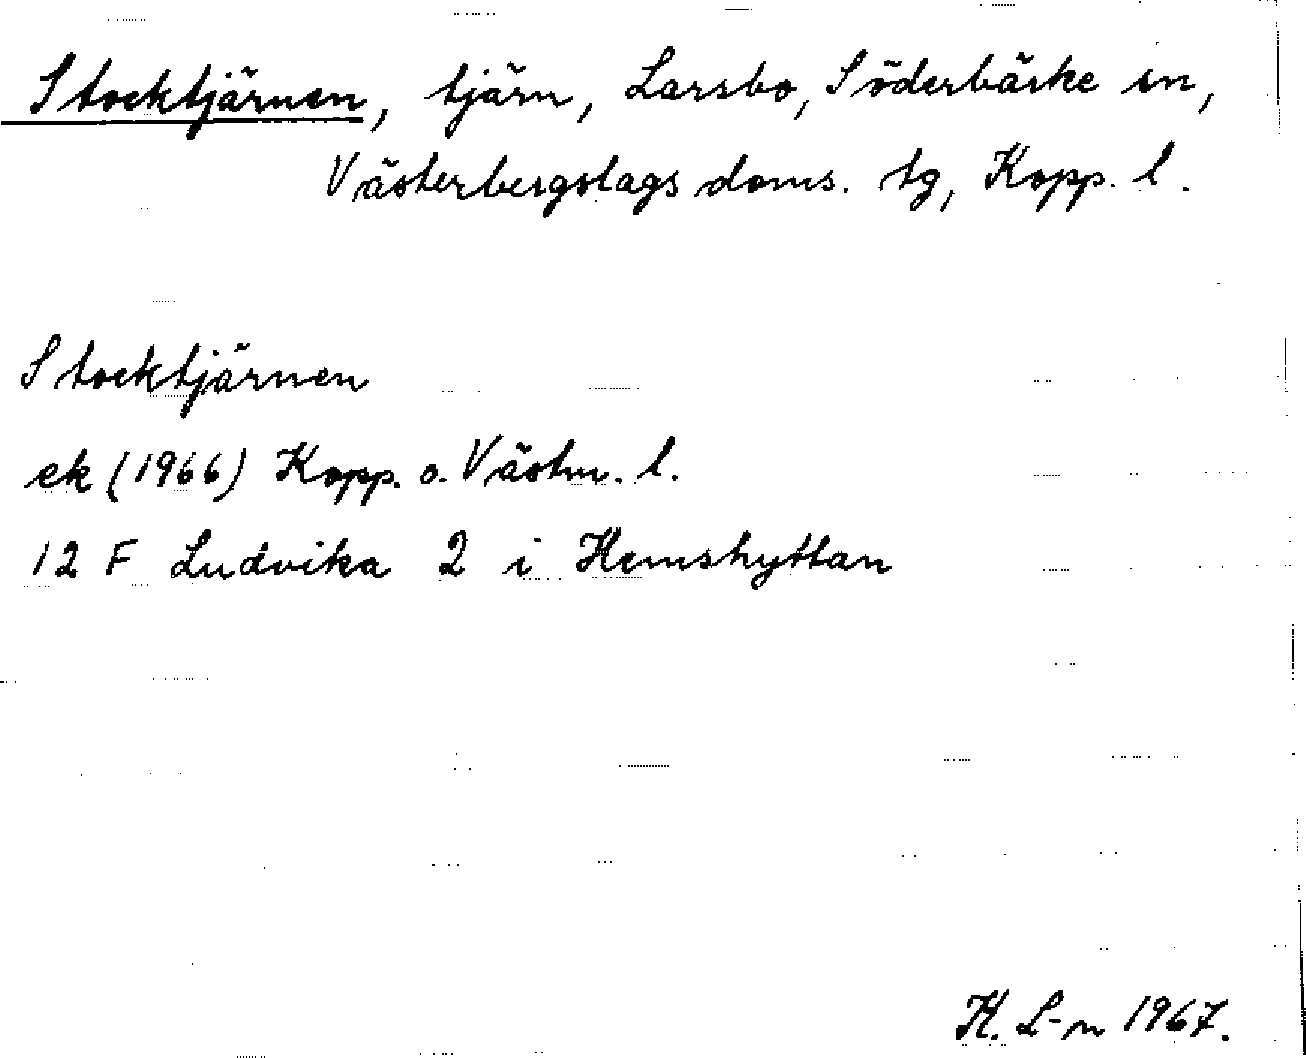 Stocktjärnen, tjärn, Larsbo, Söderbärke sn,
Västerbergslags doms. tg, Kopp. l.
Stocktjärnen
ek (1966) Kopp. o. Västm. l.
12 F Ludvika 2 i Hemshyttan
K. L-n 1967.